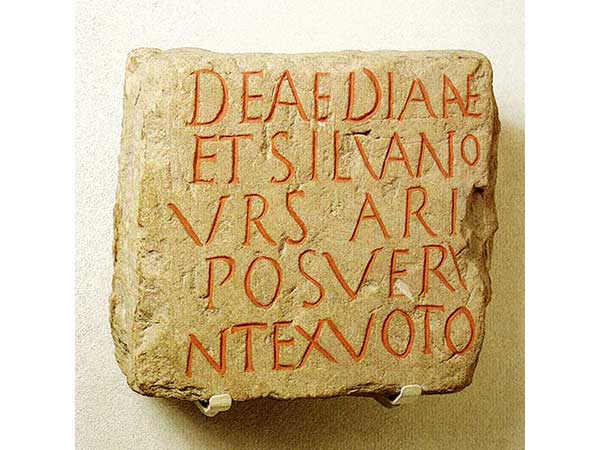 DEAE DIANAE
ET SILVANO
VRSARI
POSVERV
NT EX VOTO